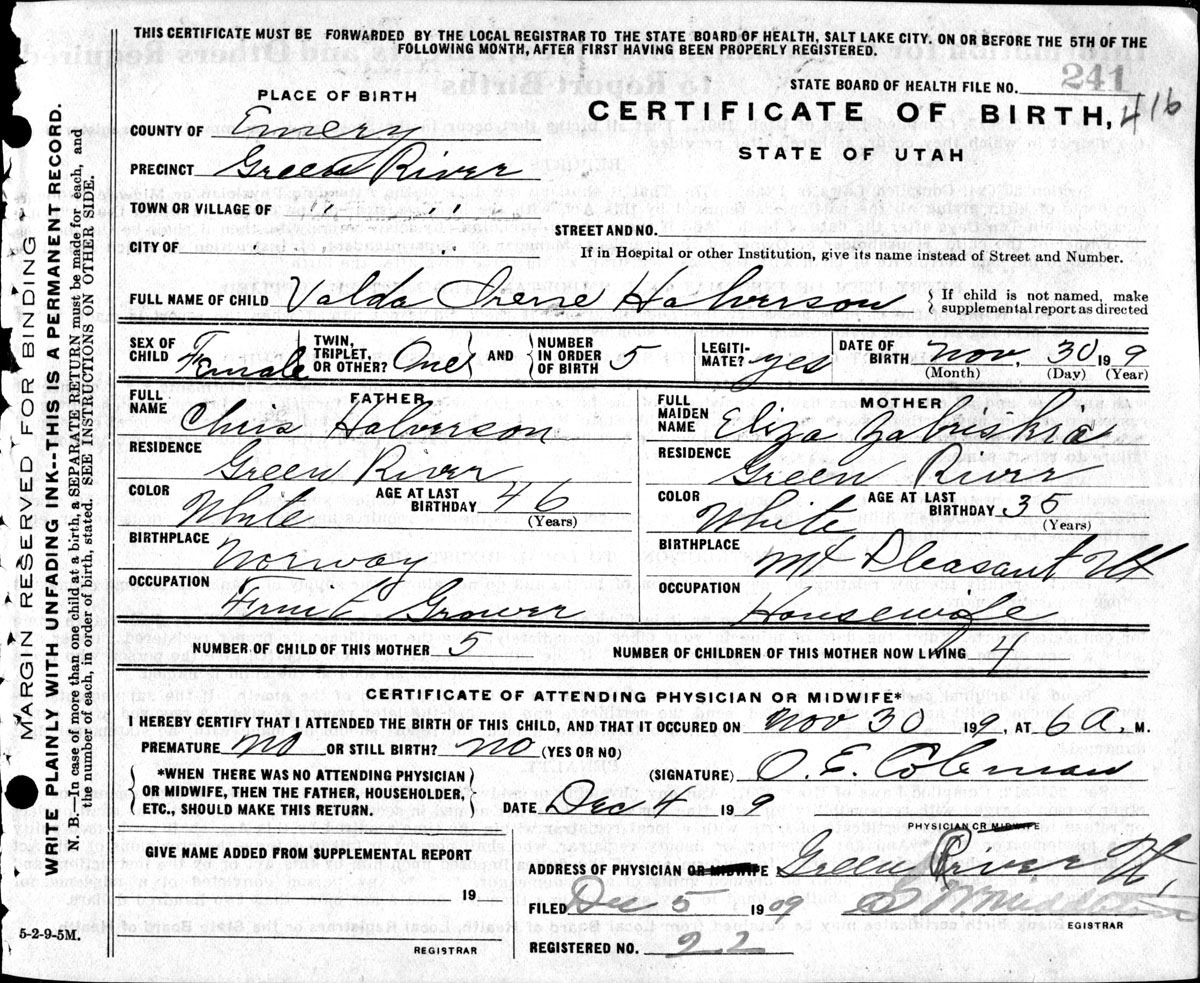 THIS CERTIFICATE MUST BE FORWARDED BY THE LOCAL REGISTRAR TO THE STATE BOARD OF HEALTH, SALT LAKE CITY, ON OR BEFORE THE 5TH OF THE
FOLLOWING MONTH, AFTER FIRST HAVING BEEN PROPERLY REGISTERED.
STATE BOARD OF HEALTH FILE NO. 241
PLACE OF BIRTH
CERTIFICATE OF BIRTH, 416
STATE OF UTAH
COUNTY OF Emery
PRECINCT Green River
TOWN OR VILLAGE OF " "
CITY OF
STREET AND NO.
If in Hospital or other Institution, give its name instead of Street and Number.
FULL NAME OF CHILD Valda Irene Halverson { If child is not named, make
supplemental report as directed
SEX OF CHILD Female
TWIN, TRIPLET, OR OTHER? One } AND { NUMBER IN ORDER OF BIRTH 5
LEGITI-MATE? yes
DATE OF BIRTH Nov, 30 19 9
(Month) (Day) (Year)
FATHER
FULL NAME Chris Halverson
RESIDENCE Green River
COLOR White AGE AT LAST BIRTHDAY 46 (Years)
BIRTHPLACE Norway
OCCUPATION Grower
MOTHER
FULL MAIDEN NAME Eliza Zabriskie
RESIDENCE Green River
COLOR White AGE AT LAST BIRTHDAY 35 (Years)
BIRTHPLACE Mt Pleasant Ut
OCCUPATION Housewife
NUMBER OF CHILD OF THIS MOTHER 5 NUMBER OF CHILDREN OF THIS MOTHER NOW LIVING 4
CERTIFICATE OF ATTENDING PHYSICIAN OR MIDWIFE*
I HEREBY CERTIFY THAT I ATTENDED THE BIRTH OF THIS CHILD, AND THAT IT OCCURED ON Nov 30 199, AT 6 A M.
PREMATURE No OR STILL BIRTH? No (YES OR NO)
{ *WHEN THERE WAS NO ATTENDING PHYSICIAN
OR MIDWIFE, THEN THE FATHER, HOUSEHOLDER,
ETC., SHOULD MAKE THIS RETURN. }
(SIGNATURE) O. E. Coleman
DATE Dec 4 19 9
PHYSICIAN OR MIDWIFE
GIVE NAME ADDED FROM SUPPLEMENTAL REPORT
19
REGISTRAR
ADDRESS OF PHYSICIAN OR MIDWIFE Green River Ut,
FILED Dec 5 1909
EGISTRAR
REGISTERED NO. 22
5-2-9-5M.
MARGIN RESERVED FOR BINDING
WRITE PLAINLY WITH UNFADING INK--THIS IS A PERMANENT RECORD.
N. B.—In case of more than one child at a birth, a SEPARATE RETURN must be made for each, and
the number of each, in order of birth, stated. SEE INSTRUCTIONS ON OTHER SIDE.